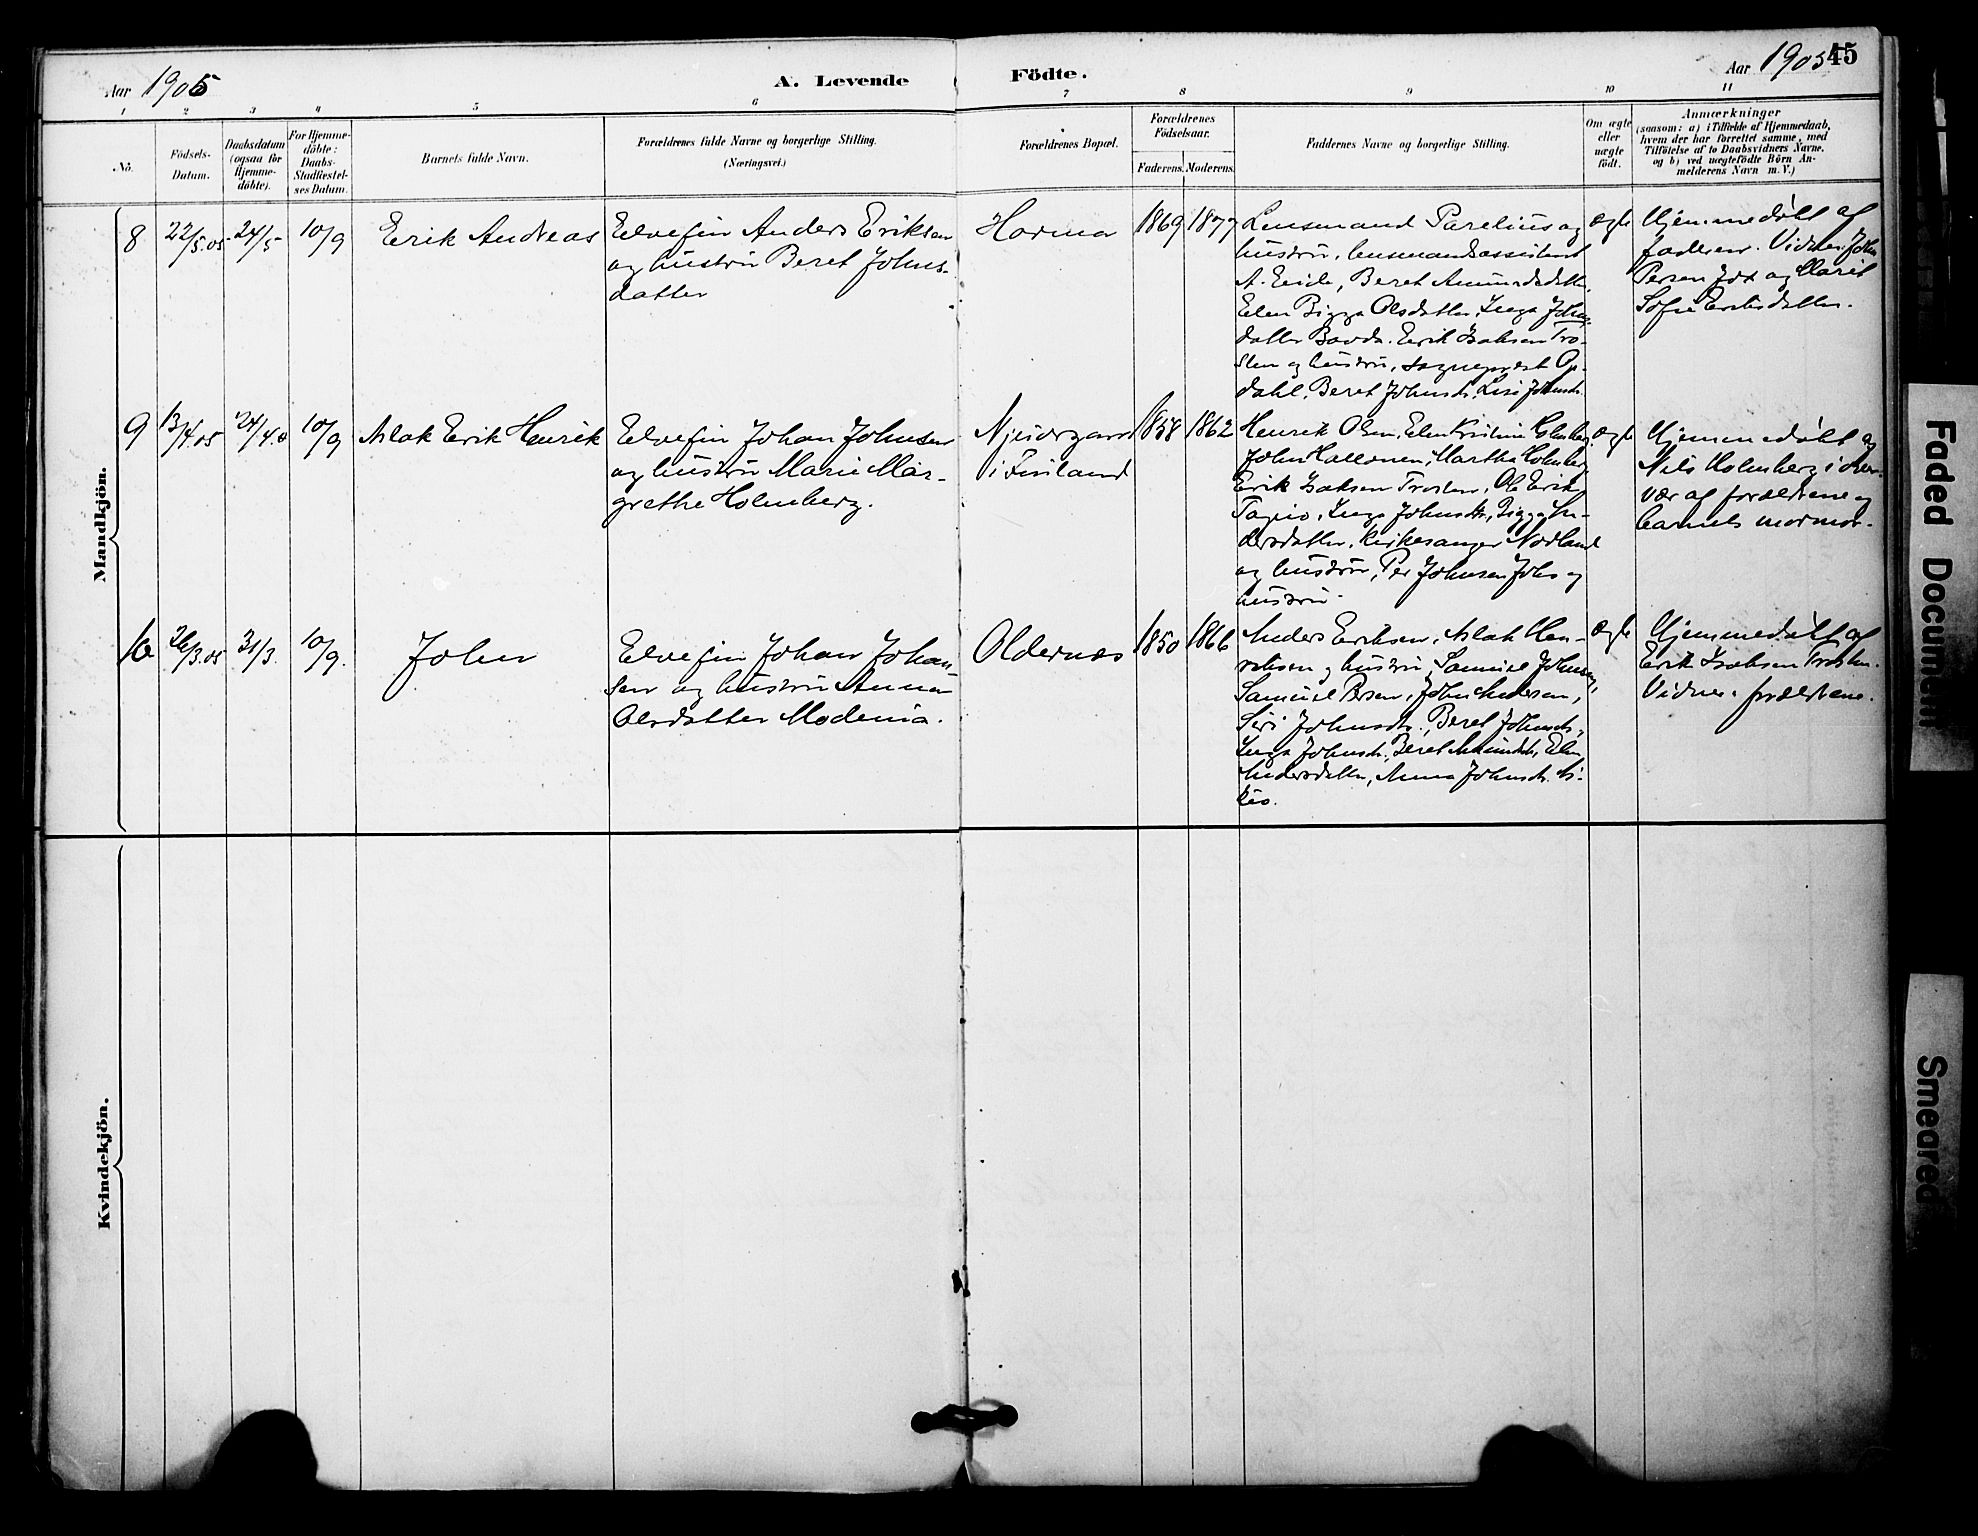 Aar 1905
A. Levende
Födte.
Aar 1905
45
1 2 3 4 5 6 7 8 9 10 11
No.
Födsels-
Datum.
Daabsdatum
(ogsaa for
Hjemme-
döbte).
For Hjemme-
döbte:
Daabs-
Stadfæstel-
ses Datum.
Barnets fulde Navn.
Forældrenes fulde Navne og borgerlige Stilling.
(Næringsvei.)
Forældrenes Bopæl.
Forældrenes
Födselsaar.
Faderens. Moderens.
Faddernes Navne og borgerlige Stilling.
Om ægte
eller
uægte
født.
Anmærkninger
(saasom: a) i Tilfælde af Hjemmedaab,
hvem der har forrettet samme, med
Tilföielse af to Daabsvidners Navne,
og b) ved uægtefödte Börn An-
melderens Navn m. V.)
Mandkjön.
8
22/5.05
24/5
10/9
Erik Andreas
Elvefin Anders Eriksen
og hustru Beret Johns-
datter
Horma
1869
1877
Lensmand Parelius og
hustru, lensmandsassistent
A. Eide, Beret Amundsdatter,
Elen Bigga Olsdatter, Inga Johns-
datter Bavda. Erik Isaksen Tro-
sten og hustru, sogneprest Op-
dahl, Beret Johnsdr. Lisi Johnsdr.
ægte
Hjemmedøbt af
faderen. Vidner: John
Persen Jox og Marit
Sofie Eriksdatter.
9
13/4.05
24/4.0
10/9
Aslak Erik Henrik
Elvefin Johan Johnsen
og hustru Marie Mar-
grethe Holmberg.
Njuorgam
i Finland
1858
1862
Henrik Olsen, Elen Kristine Holmberg
John Hallonen, Martha Holmberg
Erik Isaksen Trosten, Ole Erik
Tapio, Inga Johnsdtr, Bigga An-
dersdatter, kirkesanger Nordland
og hustru, Per Johnsen Johs og
hustru.
ægte
Hjemmedøbt af
Nils Holmberg i over-
vær af forældrene og
barnets mormor.
10
26/3.05
31/3.
10/9.
John
Elvefin Johan Johan-
sen og hustru Anna
Olsdatter Modenia.
Oldernæs
1850
1866
Anders Eriksen, Aslak Hen-
riksen og hustru, Samuel Johnsen,
Samuel Persen, John Andersen,
Siri Johnsdtr., Beret Johnsdr.,
Inga Johnsdr. Beret Amundsdr, Elen
Andersdatter, Anna Johnsdr.
ægte
Hjemmedøbt af
Erik Isaksen Trosten.
Vidner: forældrene.
Kvindekjön.
Faded Document
Smeared